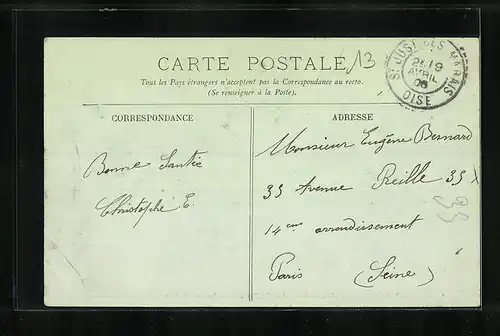 CARTE POSTALE
13
Tous les Pays étrangers n'acceptent pas la Correspondance au recto.
(Se renseigner à la Poste).
ST JUST DES MARAIS
AVRIL
06
OISE
CORRESPONDANCE
Bonne Santée
Christophe E.
ADRESSE
Monsieur Eugène Besnard
35 Avenue Reille 35
14eme arrondissement
Paris (Seine)